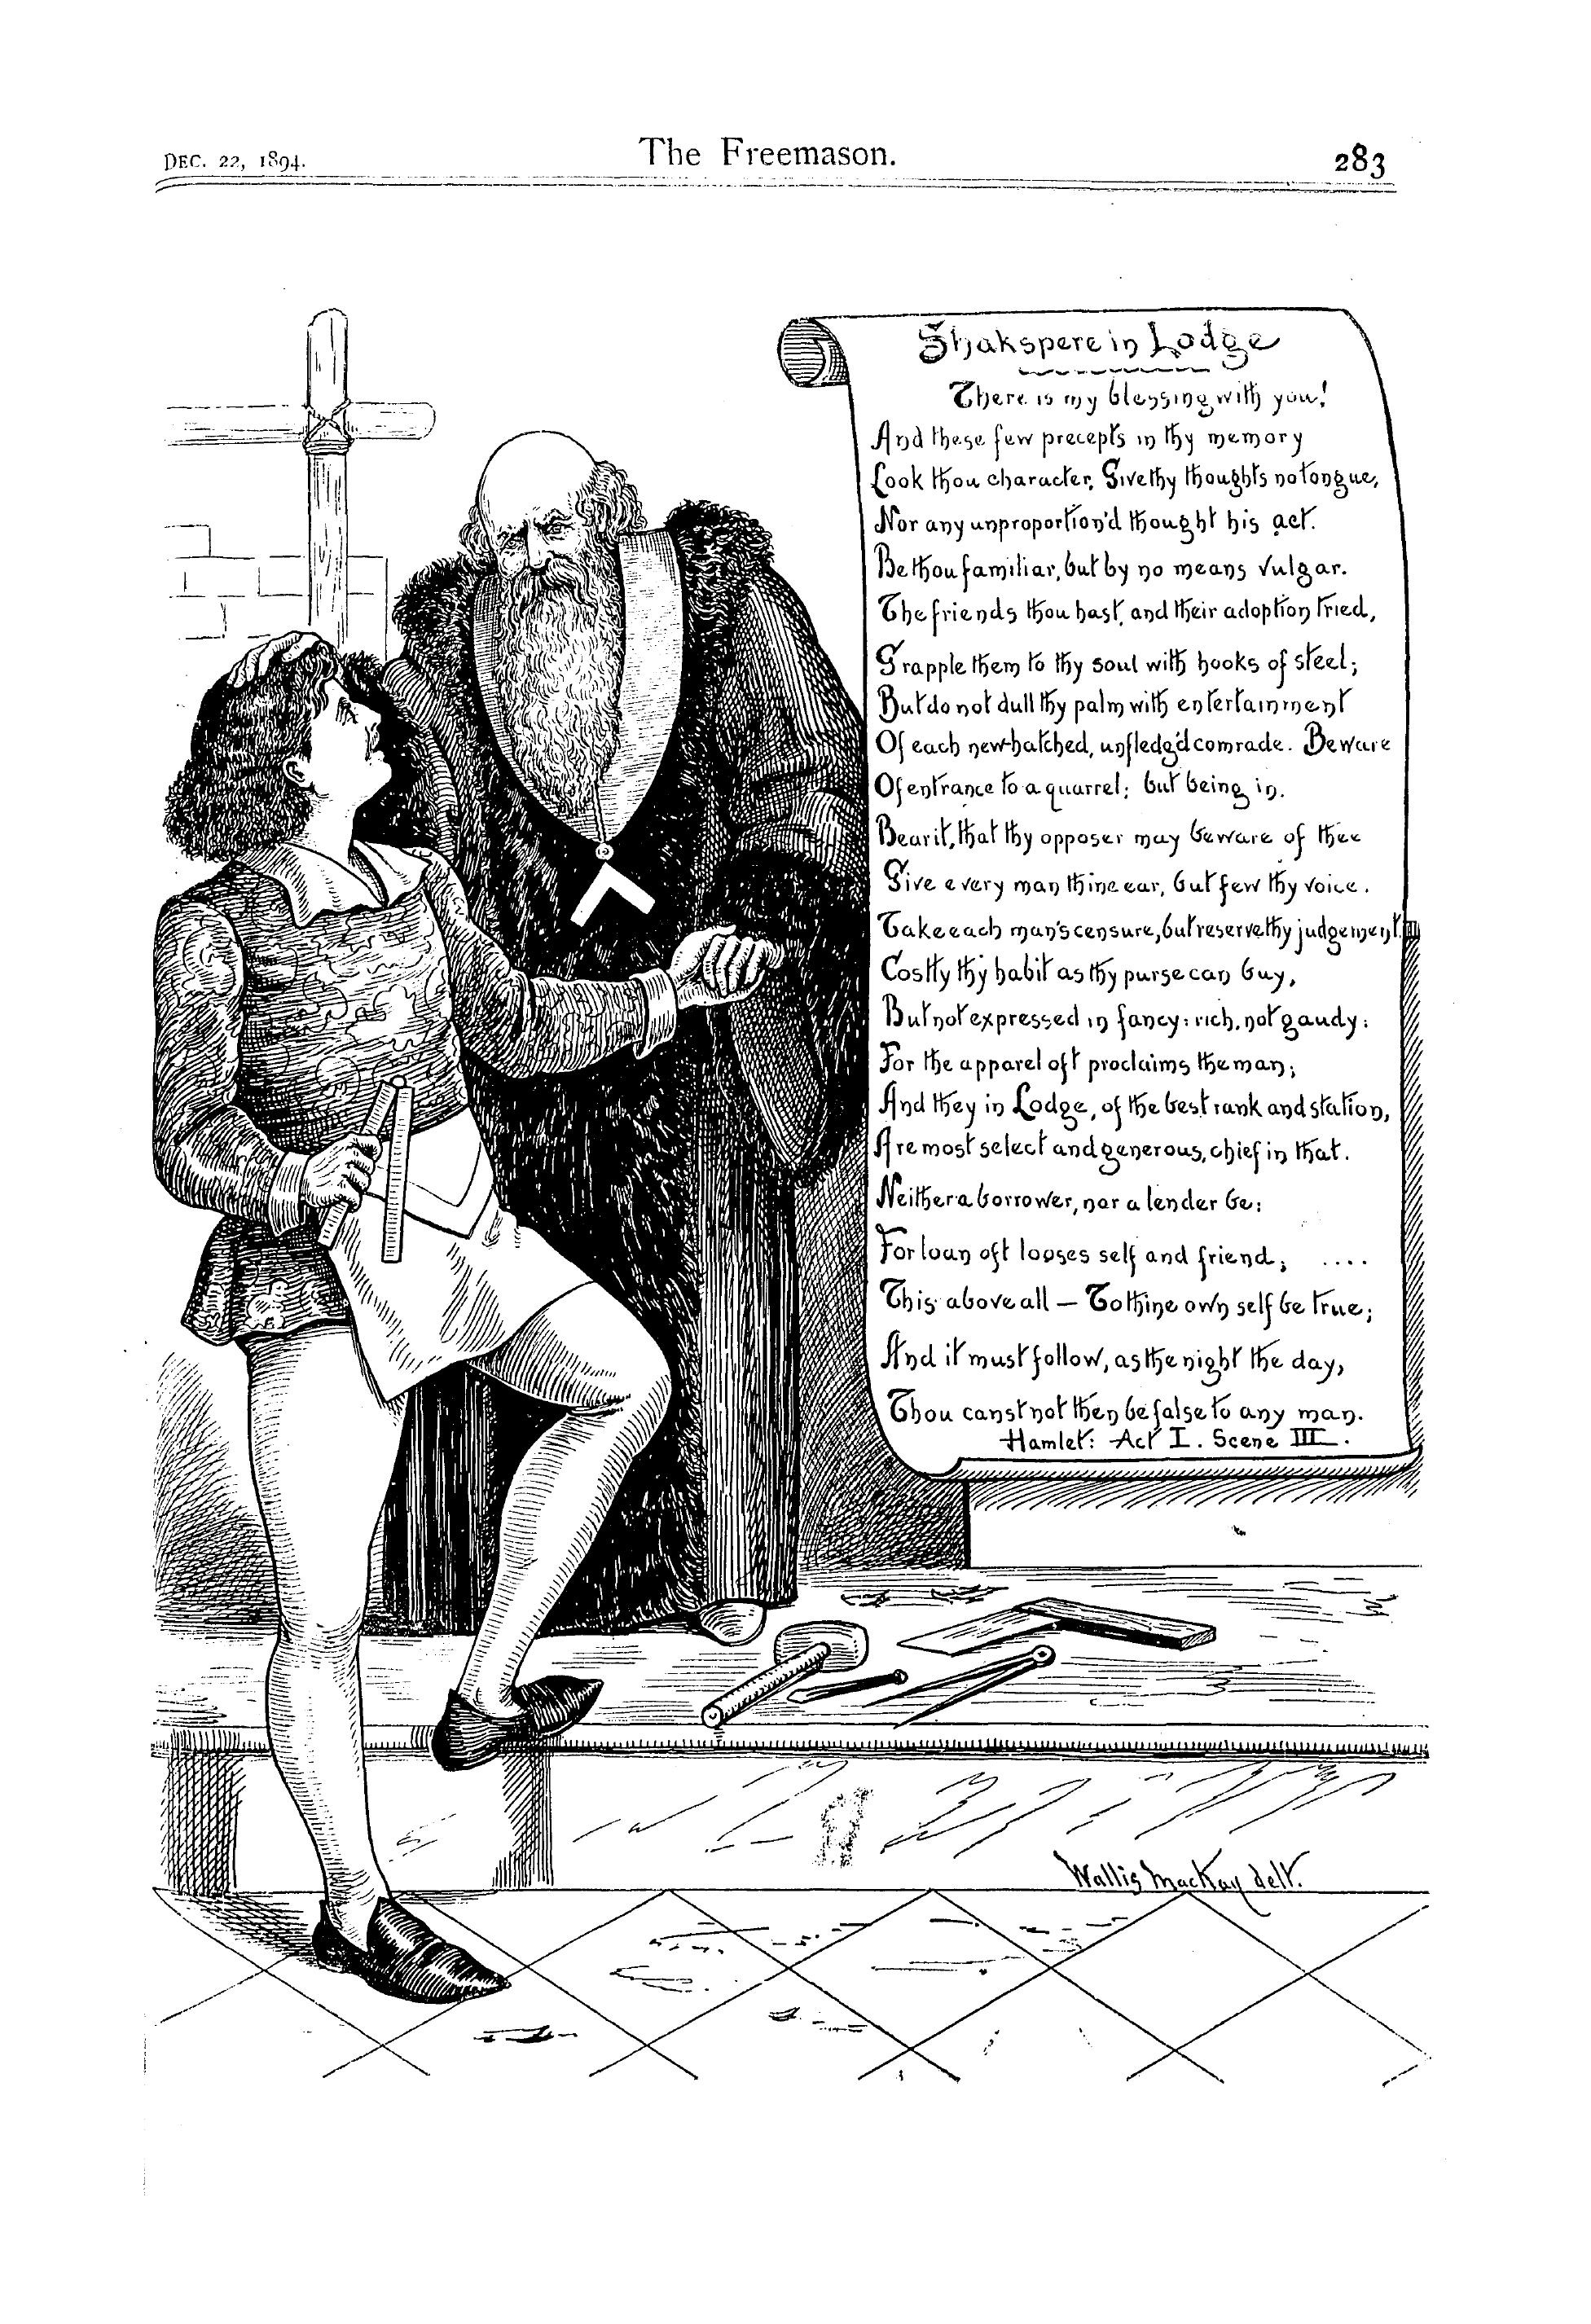 DEC. 22, 1894.
The Freemason.
283
Shakspere in Lodge
There is my blessing with you!
And these few precepts in thy memory
Look thou character, Give thy thoughts no tongue,
Nor any unproportion'd thought his act.
Be thou familiar, but by no means vulgar.
The friends thou hast, and their adoption tried,
Grapple them to thy soul with hooks of steel;
But do not dull thy palm with entertainment
Of each new-hatched, unfledg'd comrade. Beware
Of entrance to a quarrel; but being in.
Bear it, that thy opposer may beware of thee
Give every man thine ear, but few thy voice.
Take each man's censure, but reserve thy judgement.
Costly thy habit as thy purse can buy,
But not expressed in fancy: rich, not gaudy:
For the apparel oft proclaims the man;
And they in Lodge, of the best rank and station,
Are most select and generous, chief in that.
Neither a borrower, nor a lender be:
For loan oft looses self and friend; ....
This above all — To thine own self be true;
And it must follow, as the night the day,
Thou canst not then be false to any man.
Hamlet: Act I. Scene III.
Wallis MacKay delt.